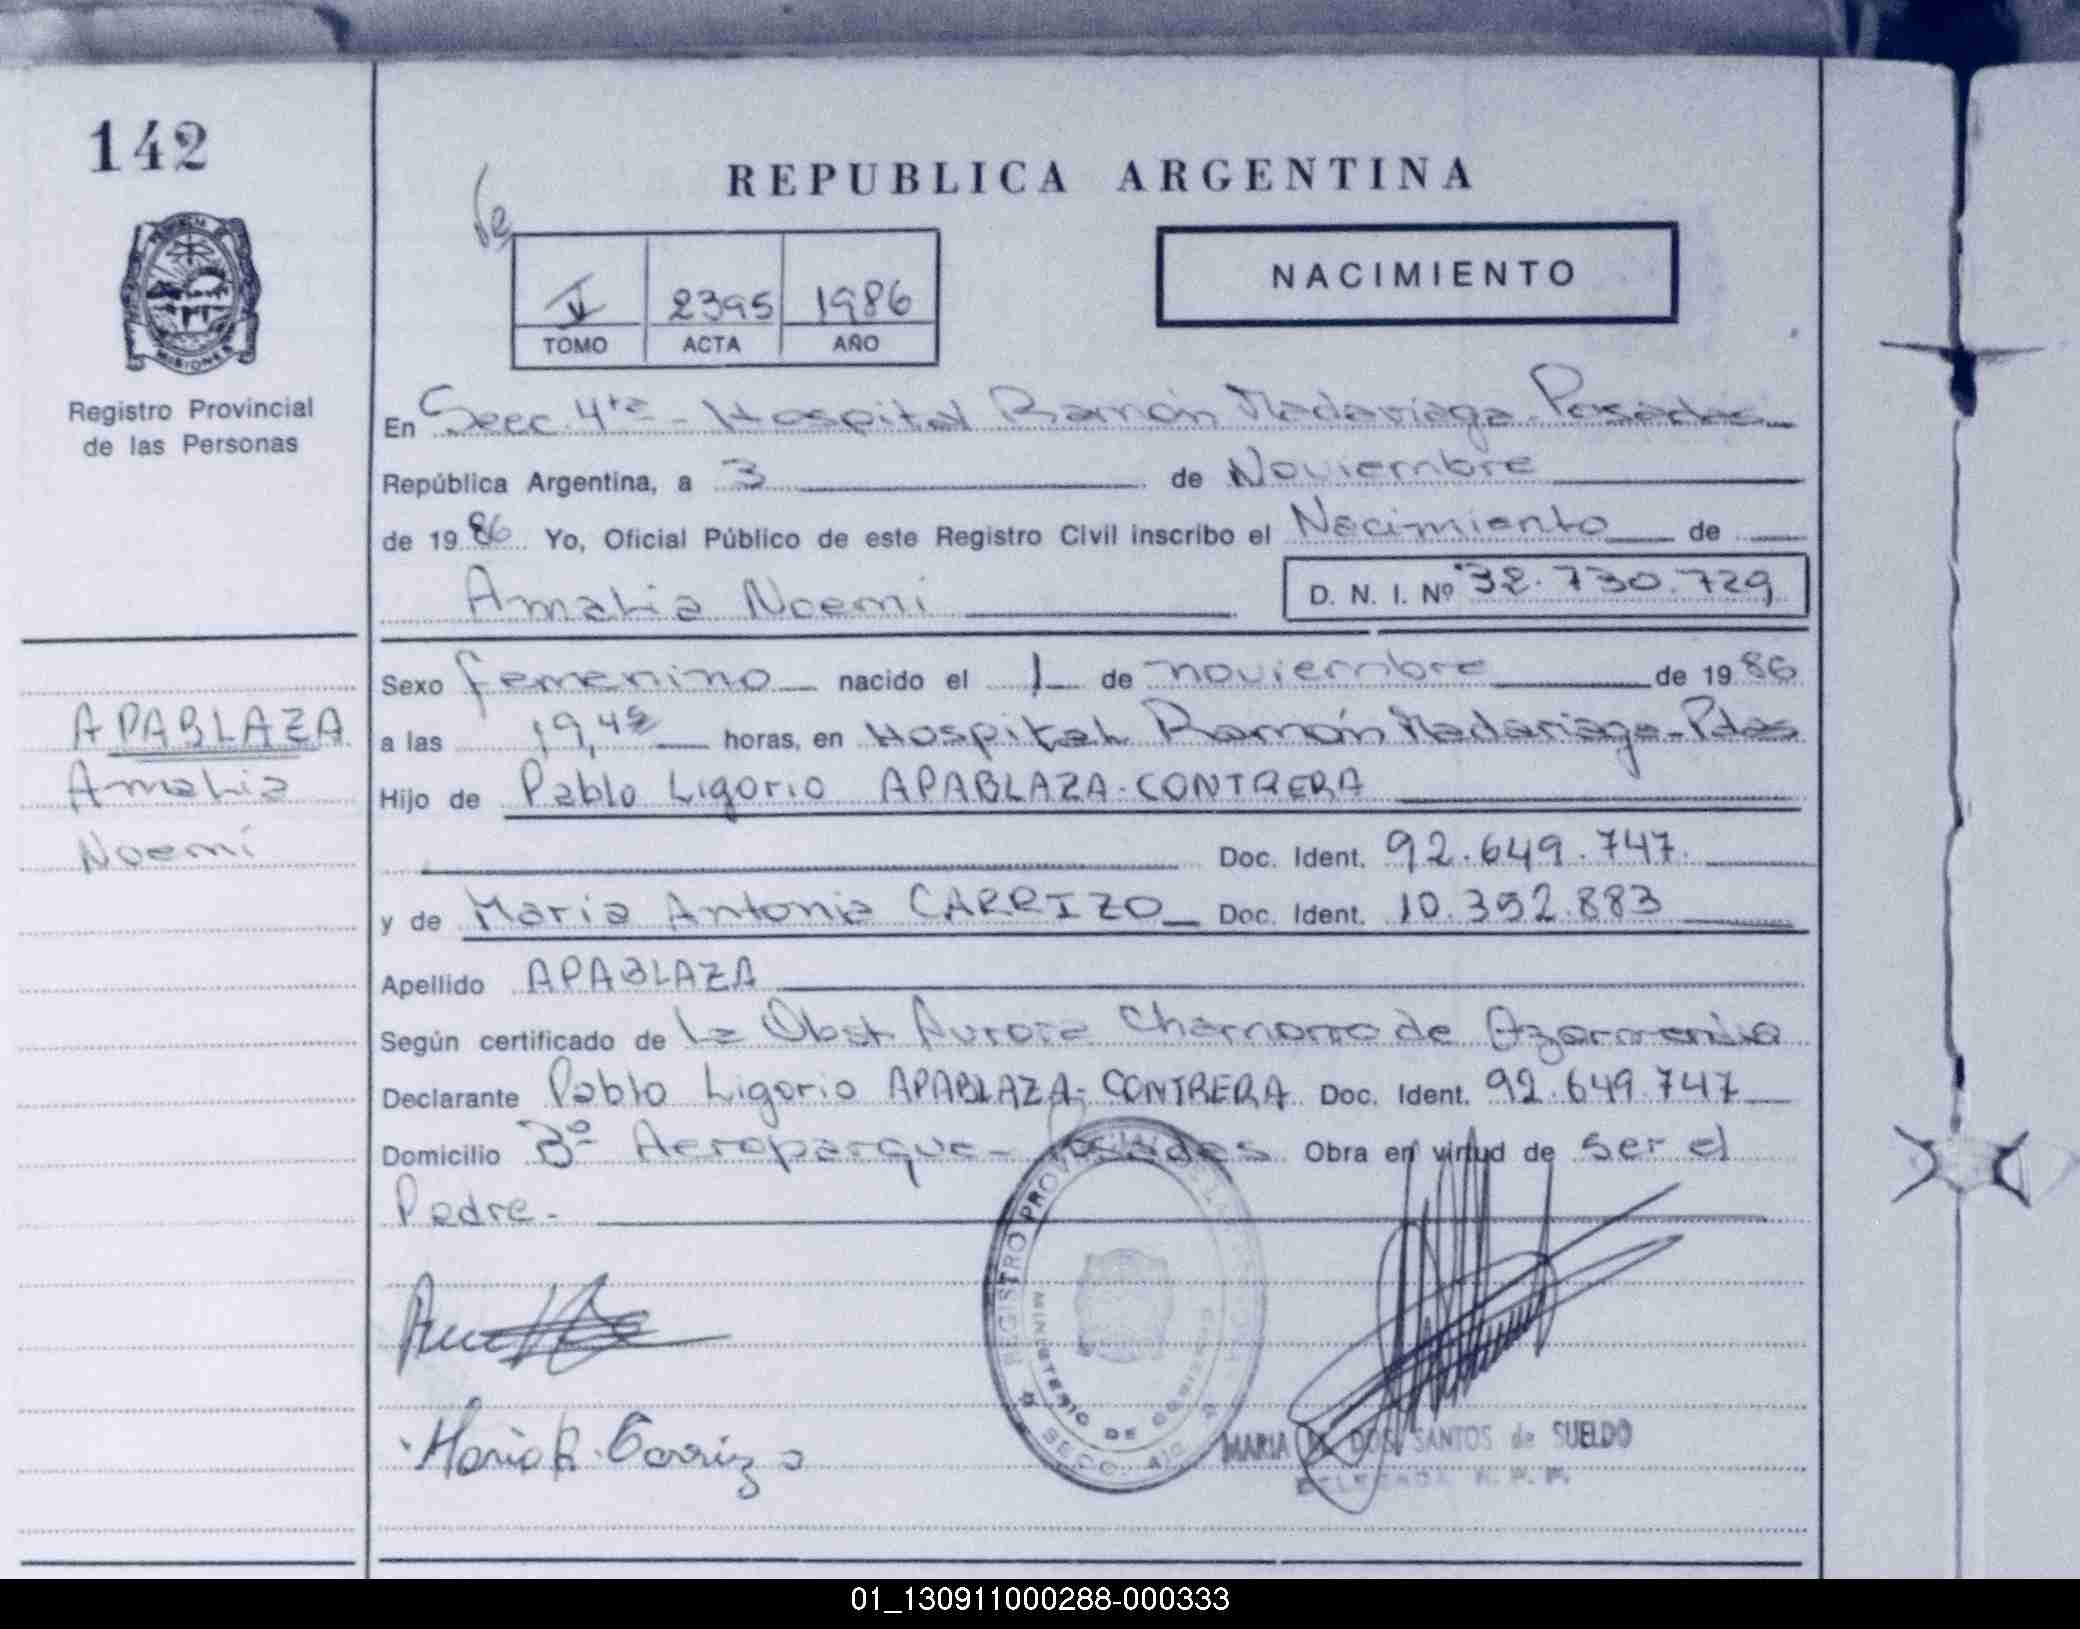 142
REPUBLICA ARGENTINA
MISIONES
Registro Provincial
de las Personas
2395 1986
TOMO ACTA AÑO
NACIMIENTO
En Secc. 4ta - Hospital Ramón Madariaga - Posadas
República Argentina, a 3 de Noviembre
de 1986 Yo, Oficial Público de este Registro Civil inscribo el Nacimiento de
Amalia Noemi D. N. I. Nº 32.730.729
APABLAZA
Amalia
Noemí
Sexo femenino nacido el 1 de noviembre de 1986
a las 19,45 horas, en Hospital Ramón Madariaga - Pdas
Hijo de Pablo Ligorio APABLAZA - CONTRERA
Doc. Ident. 92.649.747.
y de Maria Antonia CARRIZO Doc. Ident. 10.392.883
Apellido APABLAZA
Según certificado de La Obst Aurora Chamorro de
Declarante Pablo Ligorio APABLAZA - CONTRERA Doc. Ident. 92.649.747
Domicilio Bº Aeroparque - Posadas Obra en virtud de ser el
Padre.-
REGISTRO PROVINCIAL DE LAS PERSONAS
MINISTERIO DE GOBIERNO
SECC.
Maria A. Carrizo
MARIA DOS SANTOS de SUELDO
DELEGADA R. P. P.
01_130911000288-000333